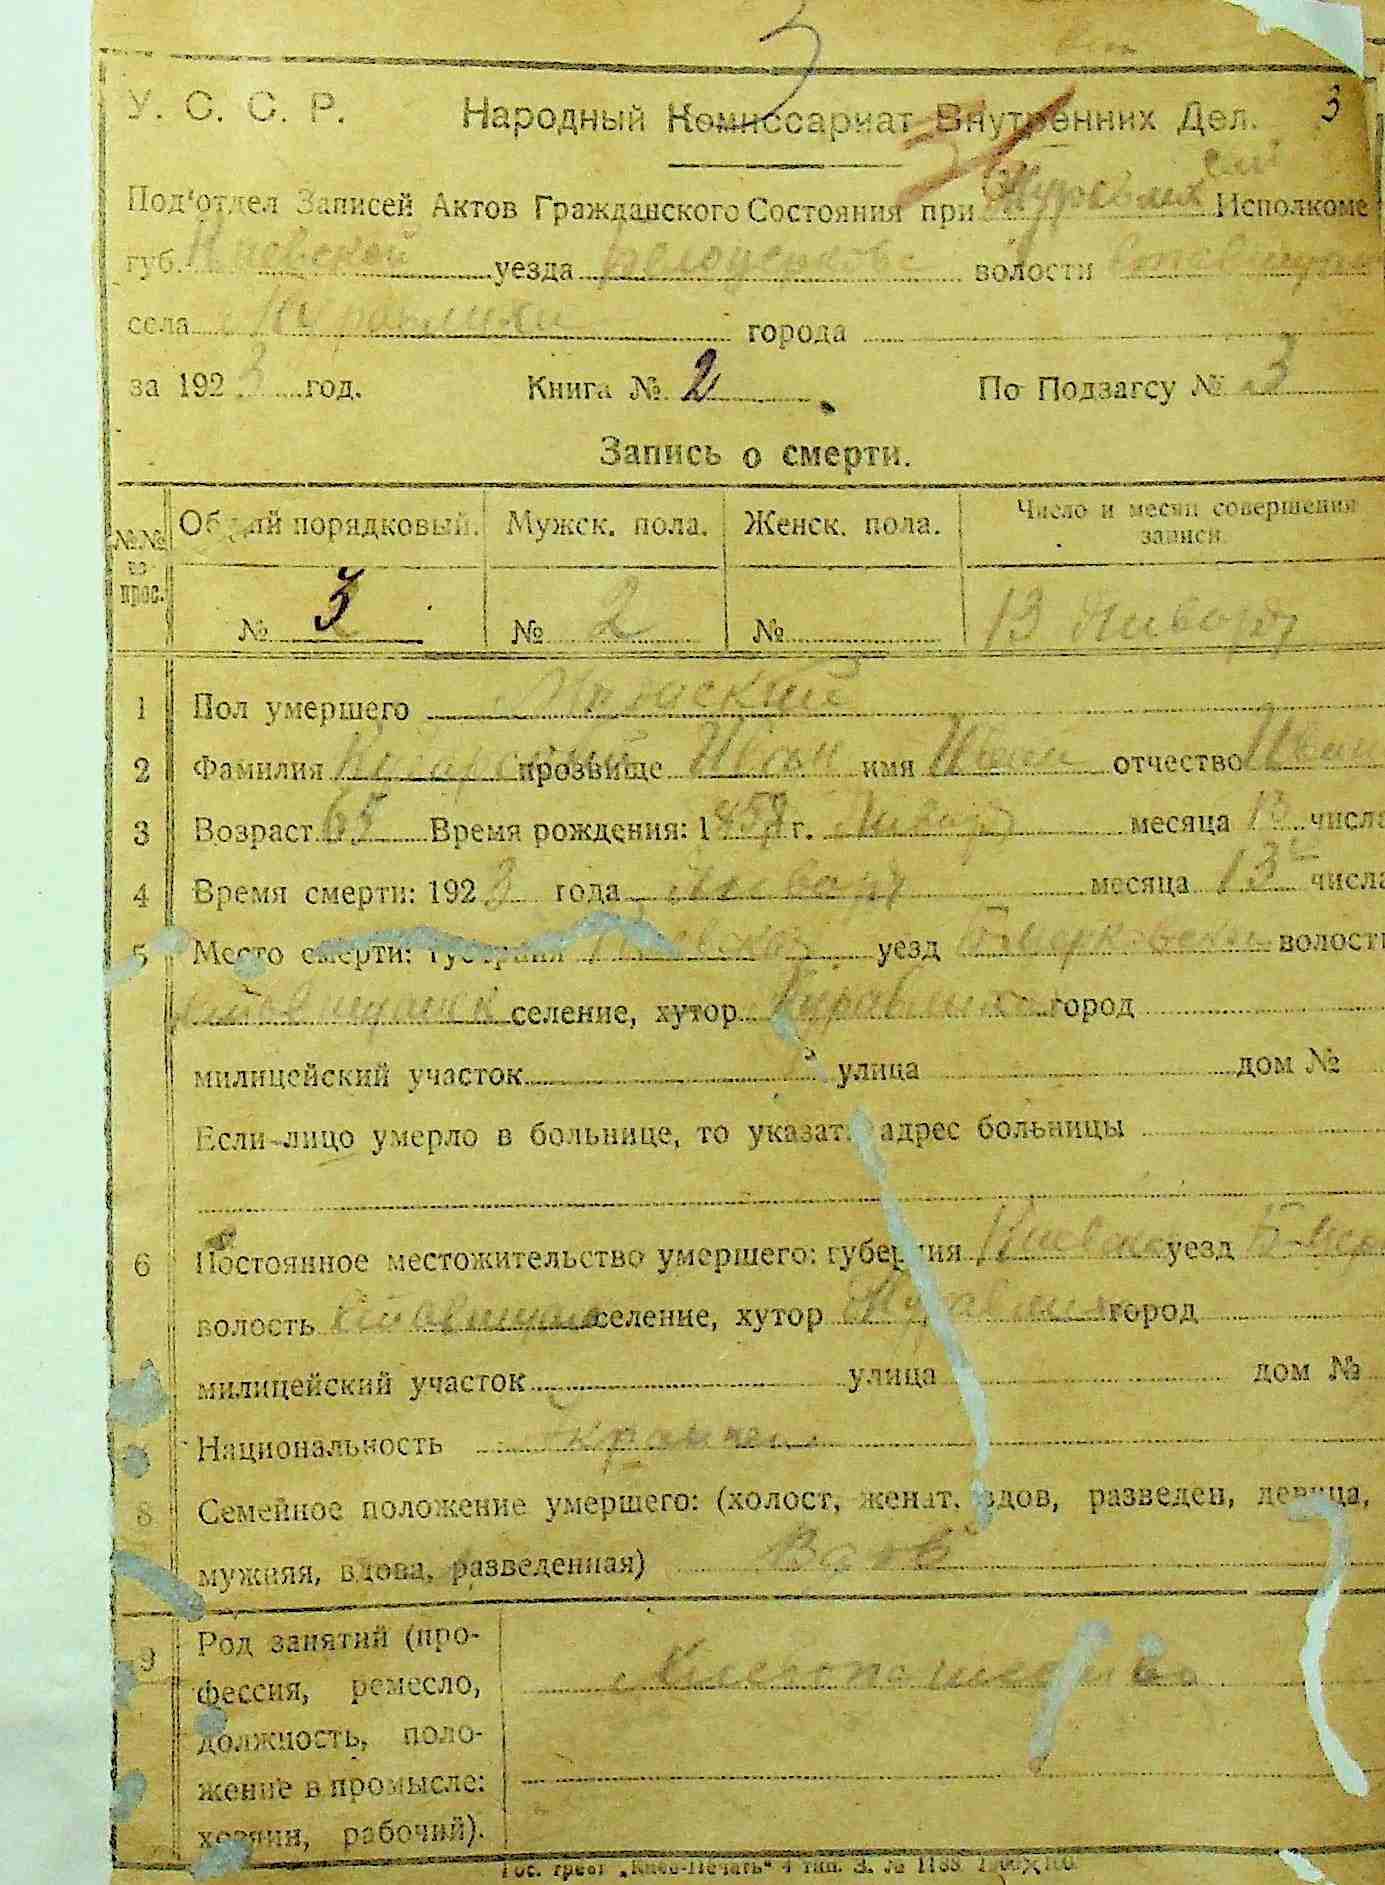 3
У. С. С. Р. Народный Комиссариат Внутренних Дел. 3
Под'отдел Записей Актов Гражданского Состояния при Исполкоме
губ. Киевской уезда волости
села Журавлихи города
за 1923 год. Книга № 2 По Подзагсу № 3
Запись о смерти.
№№ по прос. Общий порядковый. Мужск. пола. Женск. пола. Число и месяц совершения записи.
№ 3 № 2 № 13 Января
1 Пол умершего Мужский
2 Фамилия прозвище Иван имя Иван отчество Иван
3 Возраст 65 Время рождения: 1858 г. Январ месяца 13 числа
4 Время смерти: 1923 года Январ месяца 13 числа
5 Место смерти: губерния Киевская уезд волость
селение, хутор Журавлиха город
милицейский участок улица дом №
Если лицо умерло в больнице, то указать адрес больницы
6 Постоянное местожительство умершего: губерния Киевска уезд Б-Церк
волость селение, хутор Журавлиха город
милицейский участок улица дом №
Национальность
8 Семейное положение умершего: (холост, женат, вдов, разведен, девица,
мужняя, вдова, разведенная) Вдов
9 Род занятий (про-
фессия, ремесло,
должность, поло-
жение в промысле:
хозяин, рабочий).
Гос. трест „Киев-Печать" 4 тип. З. № 1188